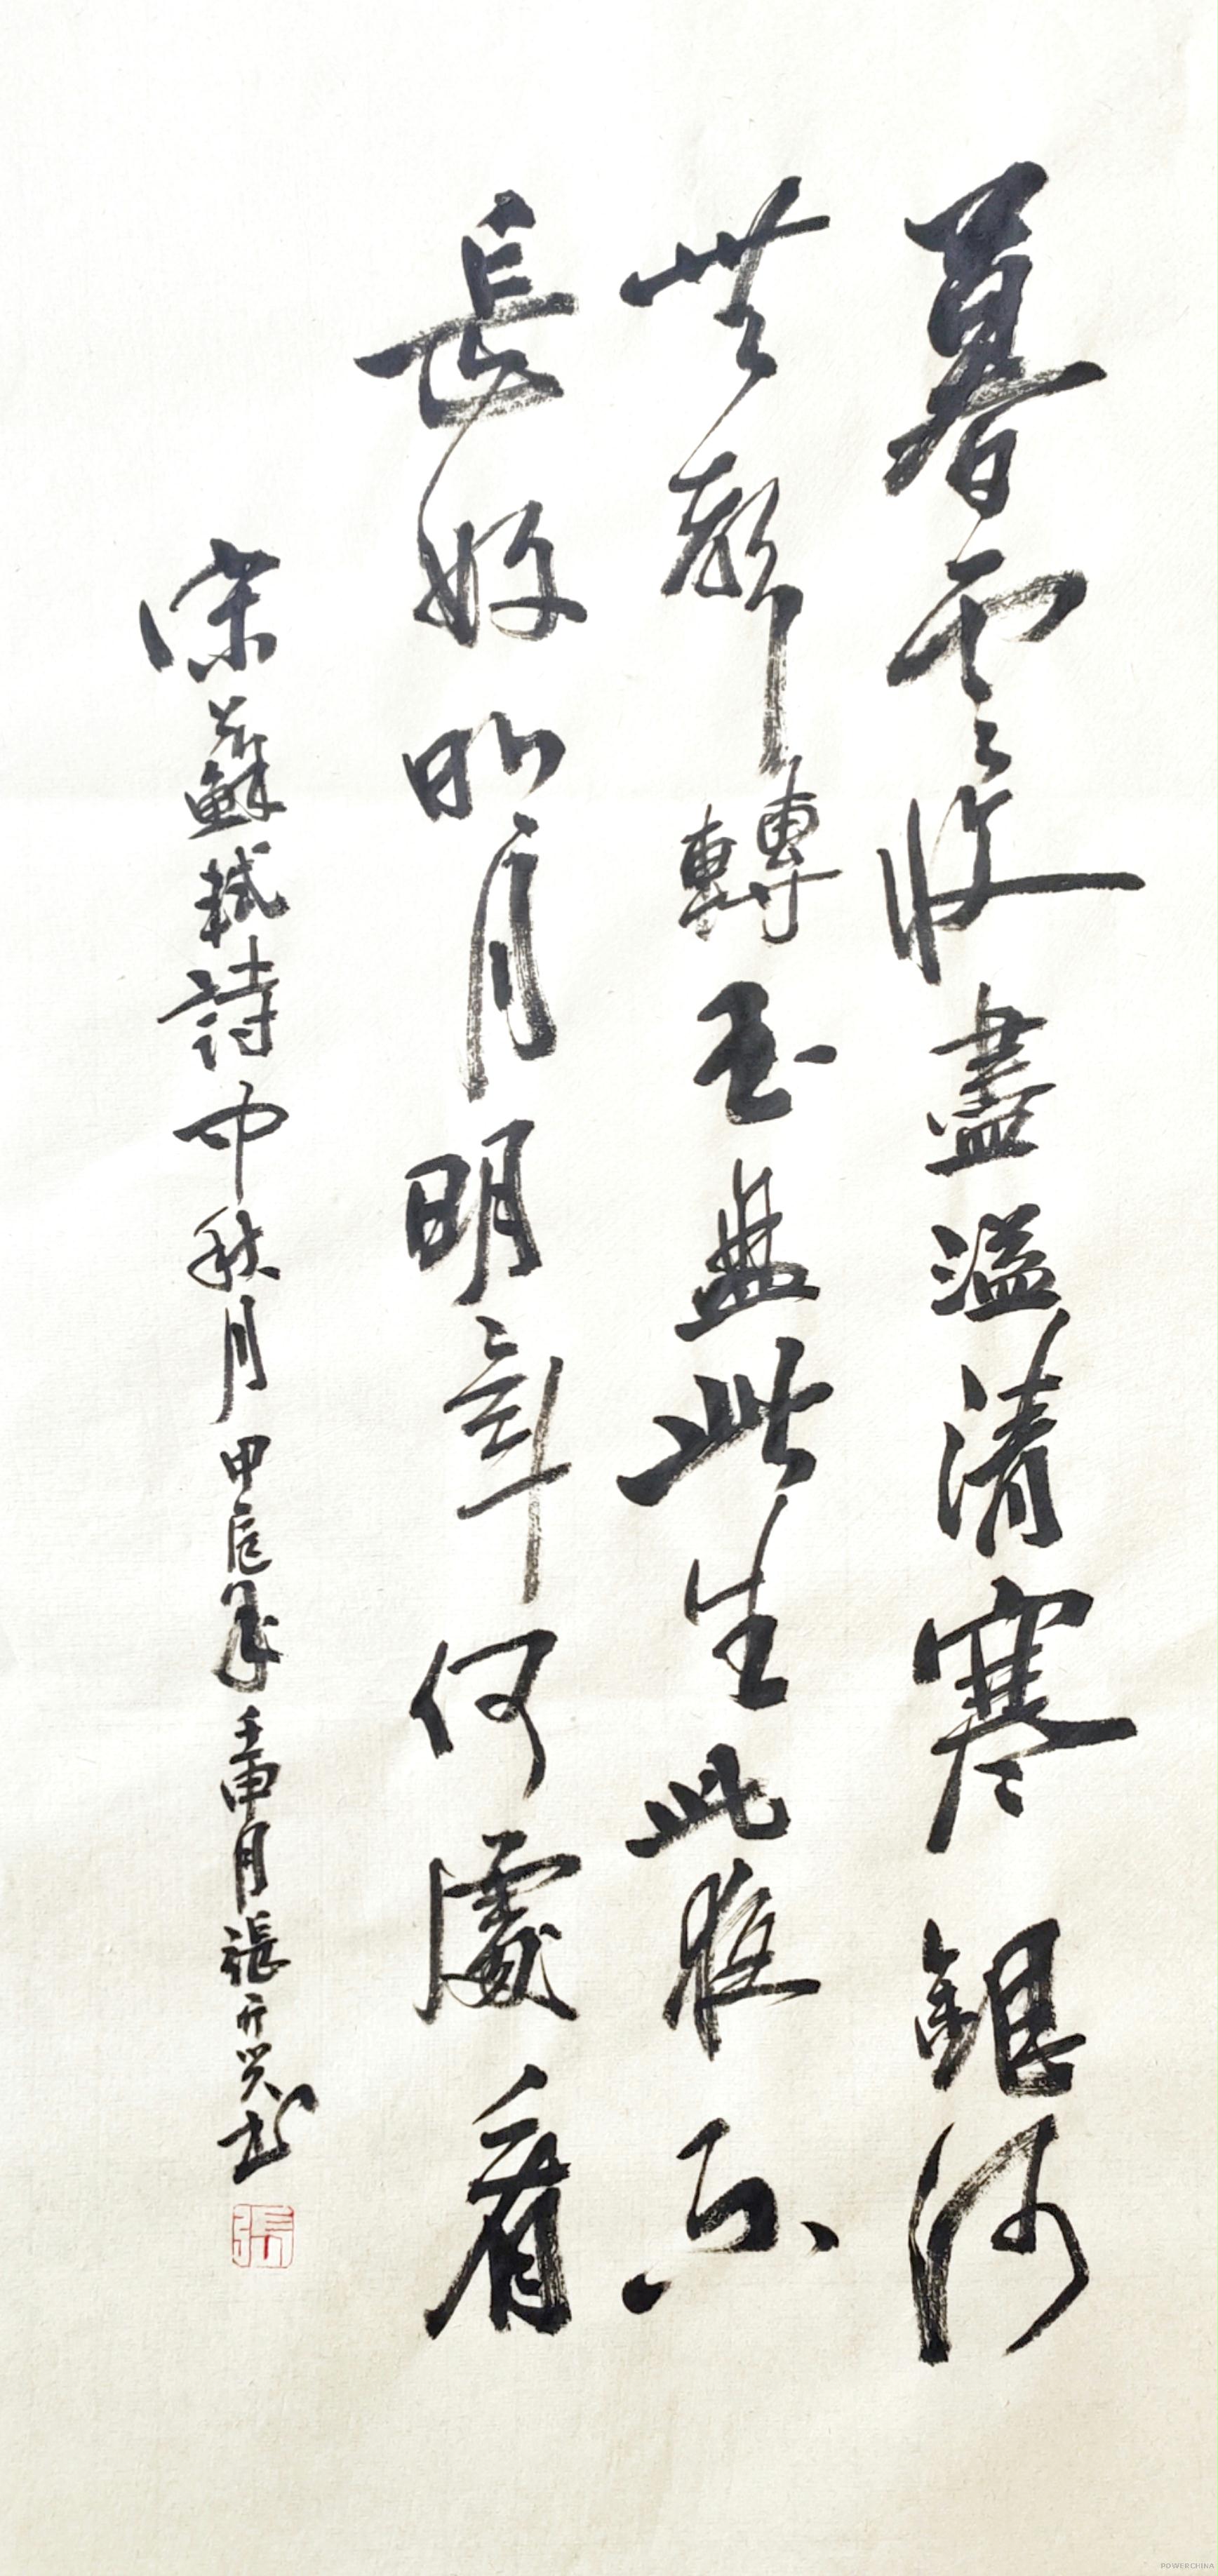 暮雲收盡溢清寒銀河
無聲轉玉盤此生此夜不
長好明月明年何處看
宋蘇軾詩中秋月甲辰年壬申月張开兴书
張
POWERCHINA